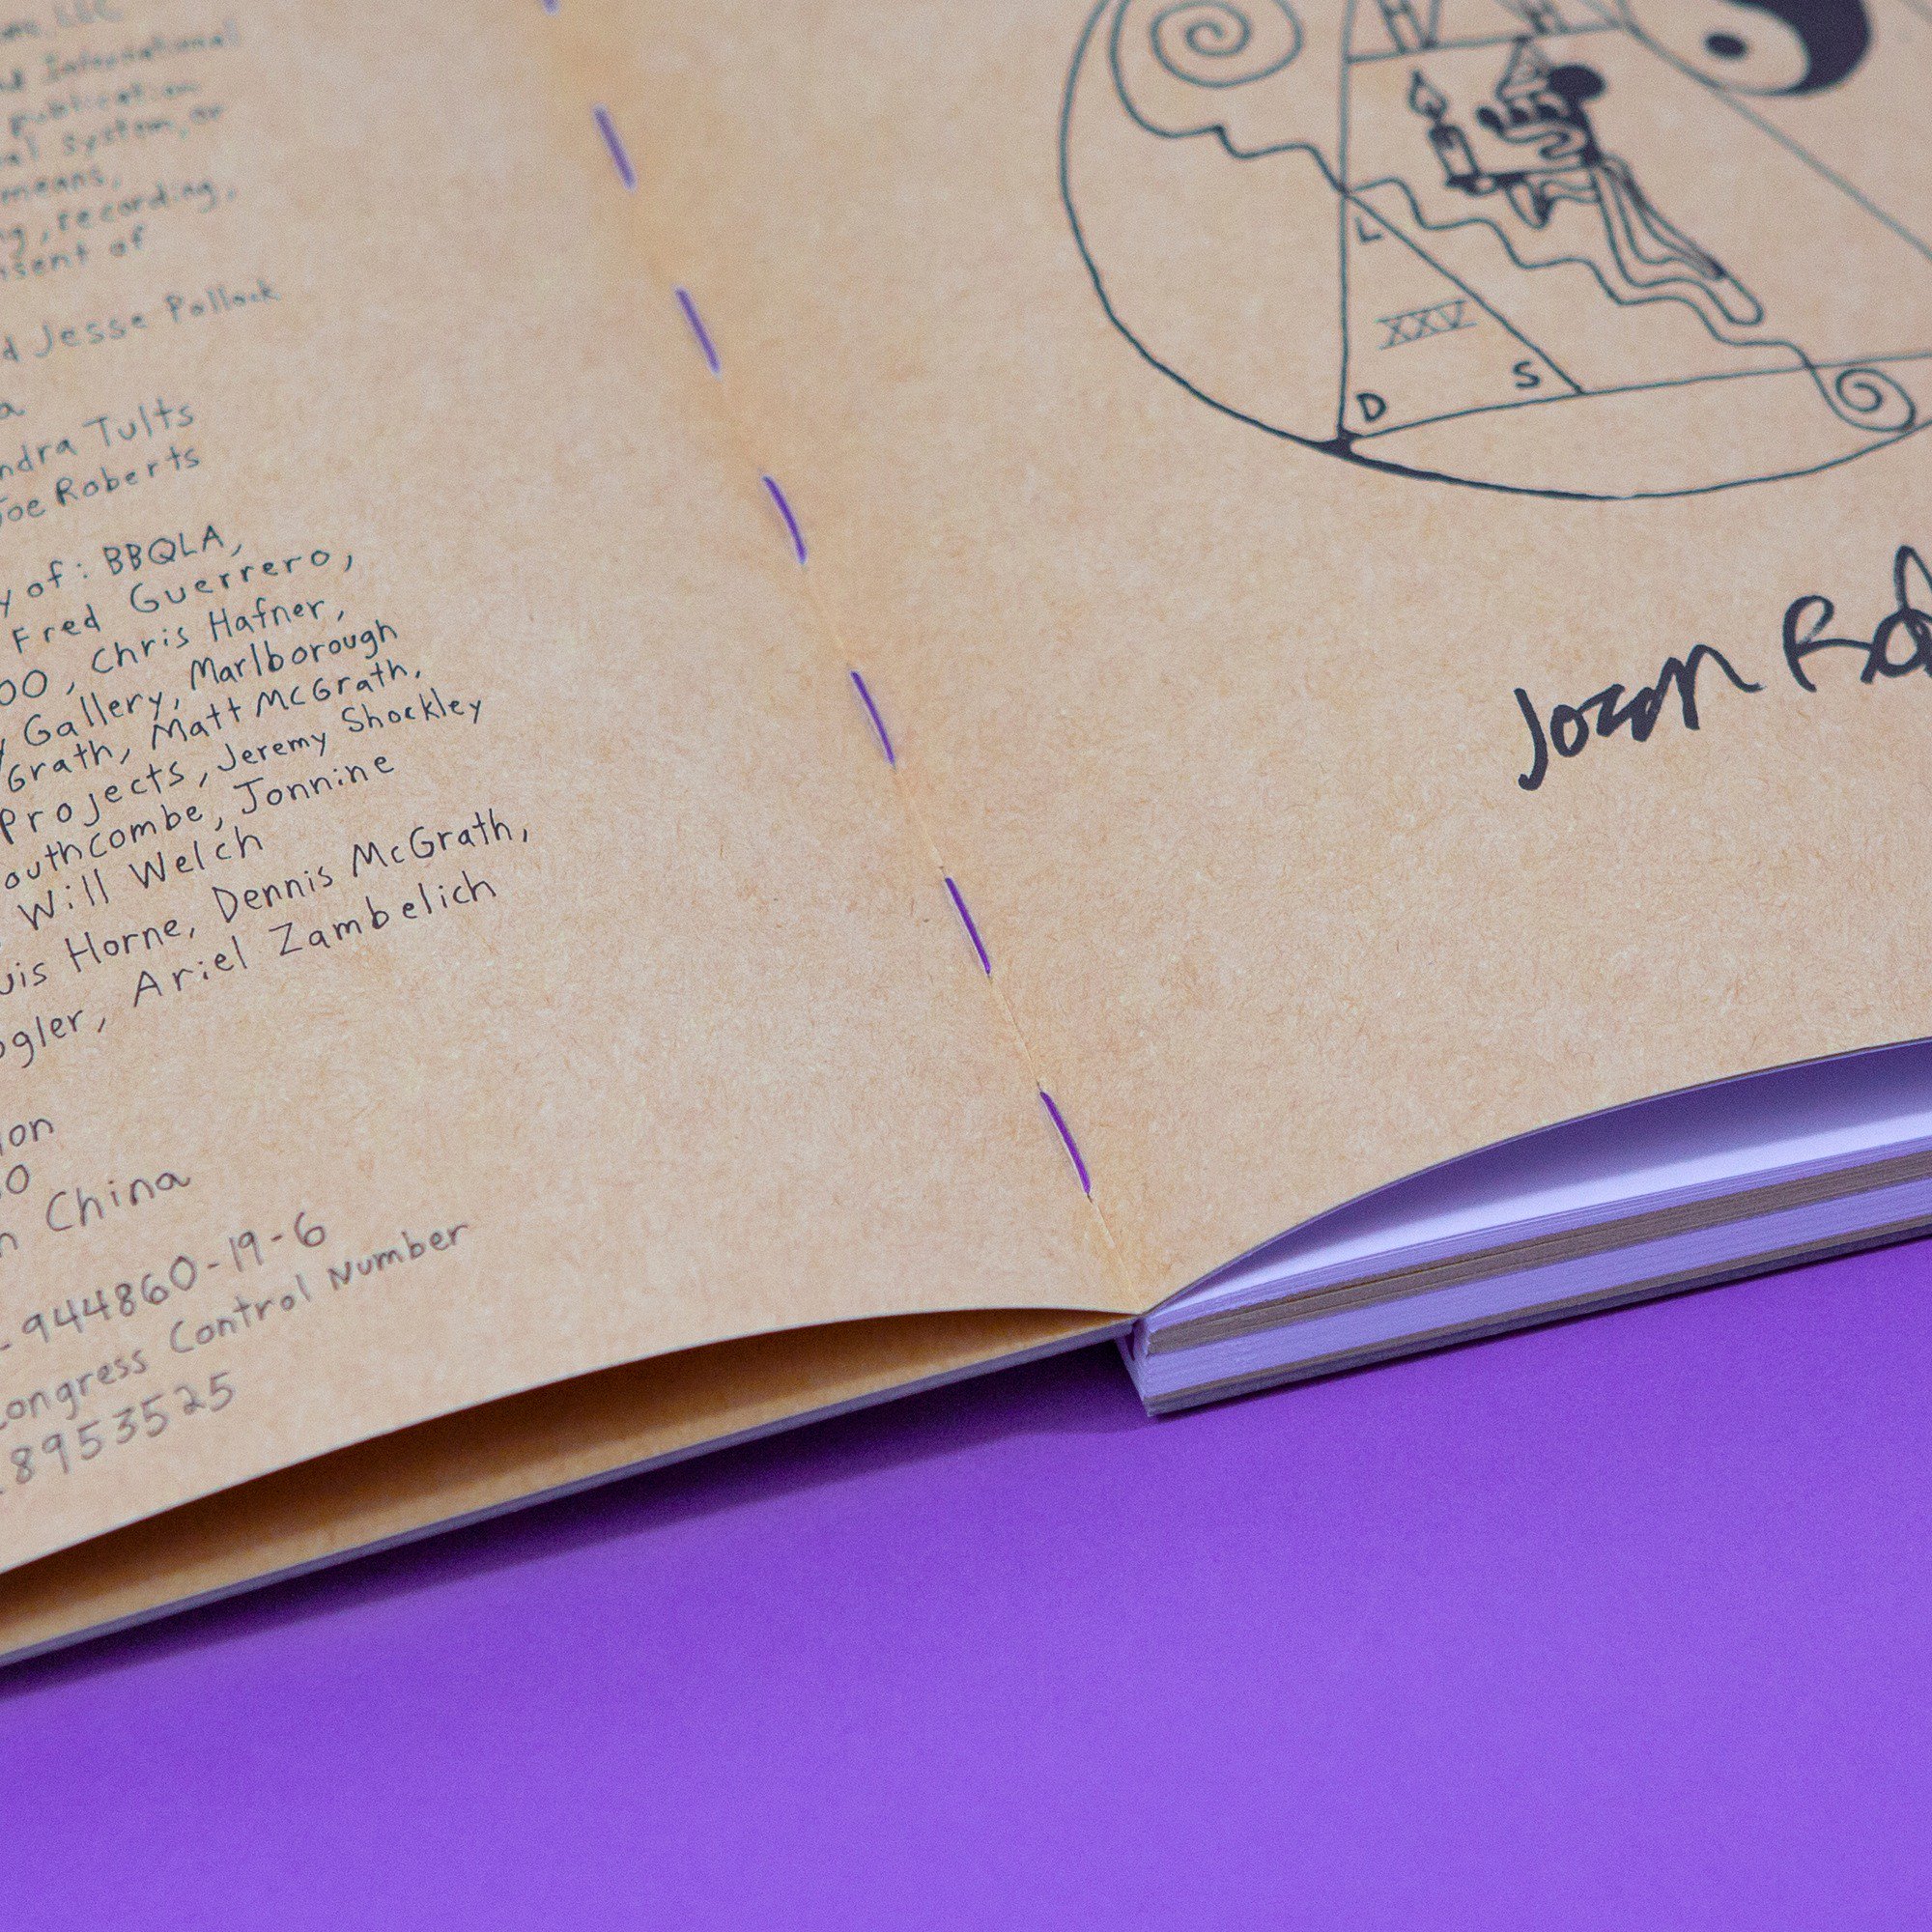 LLC
International
publication
system, or
means,
recording,
consent of
d Jesse Pollock
a
ndra Tults
Joe Roberts
y of: BBQLA,
Fred Guerrero,
OO, Chris Hafner,
y Gallery, Marlborough
Grath, Matt McGrath,
Projects, Jeremy Shockley
outhcombe, Jonnine
Will Welch
uis Horne, Dennis McGrath,
ogler, Ariel Zambelich
ion
0
n China
944860-19-6
Congress Control Number
8953525
H H
L
XXV
D S